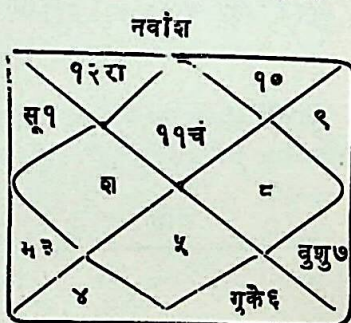 नवांश
१२रा १०
सू१ ११चं ९
श ८
मं ३ ५ वुशु७
४ गुके६